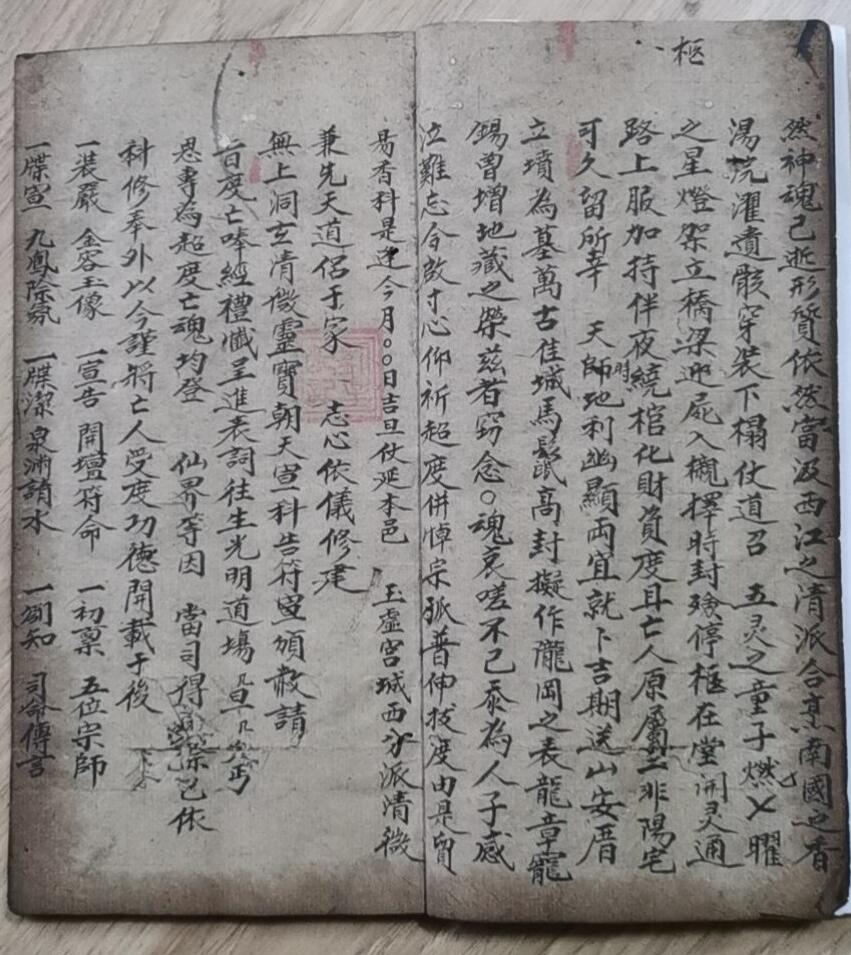 柩
然神魂已逝形質依然當汲西江之清派合烹南國之香
湯浣濯遺骸穿装下榻仗道召 五灵之童子燃乂曜
之星燈架立橋梁迎屍入櫬擇時封殮停柩在堂開灵通
路上服加持伴夜繞棺化財負度且亡人原屬 非陽宅
可久留所幸 天師地利幽顯兩宜就卜吉期送山安厝
立墳為墓萬古佳城馬鬣高封擬作瀧岡之表龍章寵
錫曹增地藏之榮兹者窃念○魂哀嗟不已忝為人子感
泣難忘今啟寸心仰祈超度併悼宗孤普伸拔度由是貿
易香科是逹今月○○日吉旦仗延本邑 玉虚宮城西分派清微
兼先天道侣于家 一志心依儀修建
無上洞玄清微靈寶朝天宣科告符宣頒赦請
旨度亡唪經禮懺呈進表詞往生光明道塲
恩專為超度亡魂均登 仙界等因 當司得 已依
科修奉外以今謹將亡人受度功德開載于後
一装嚴 金容玉像 一宣告 開壇符命 一初禀 五位宗師
一牒宣 九鳳除氛 一牒潔 泉渊請水 一劄知 司命傳言